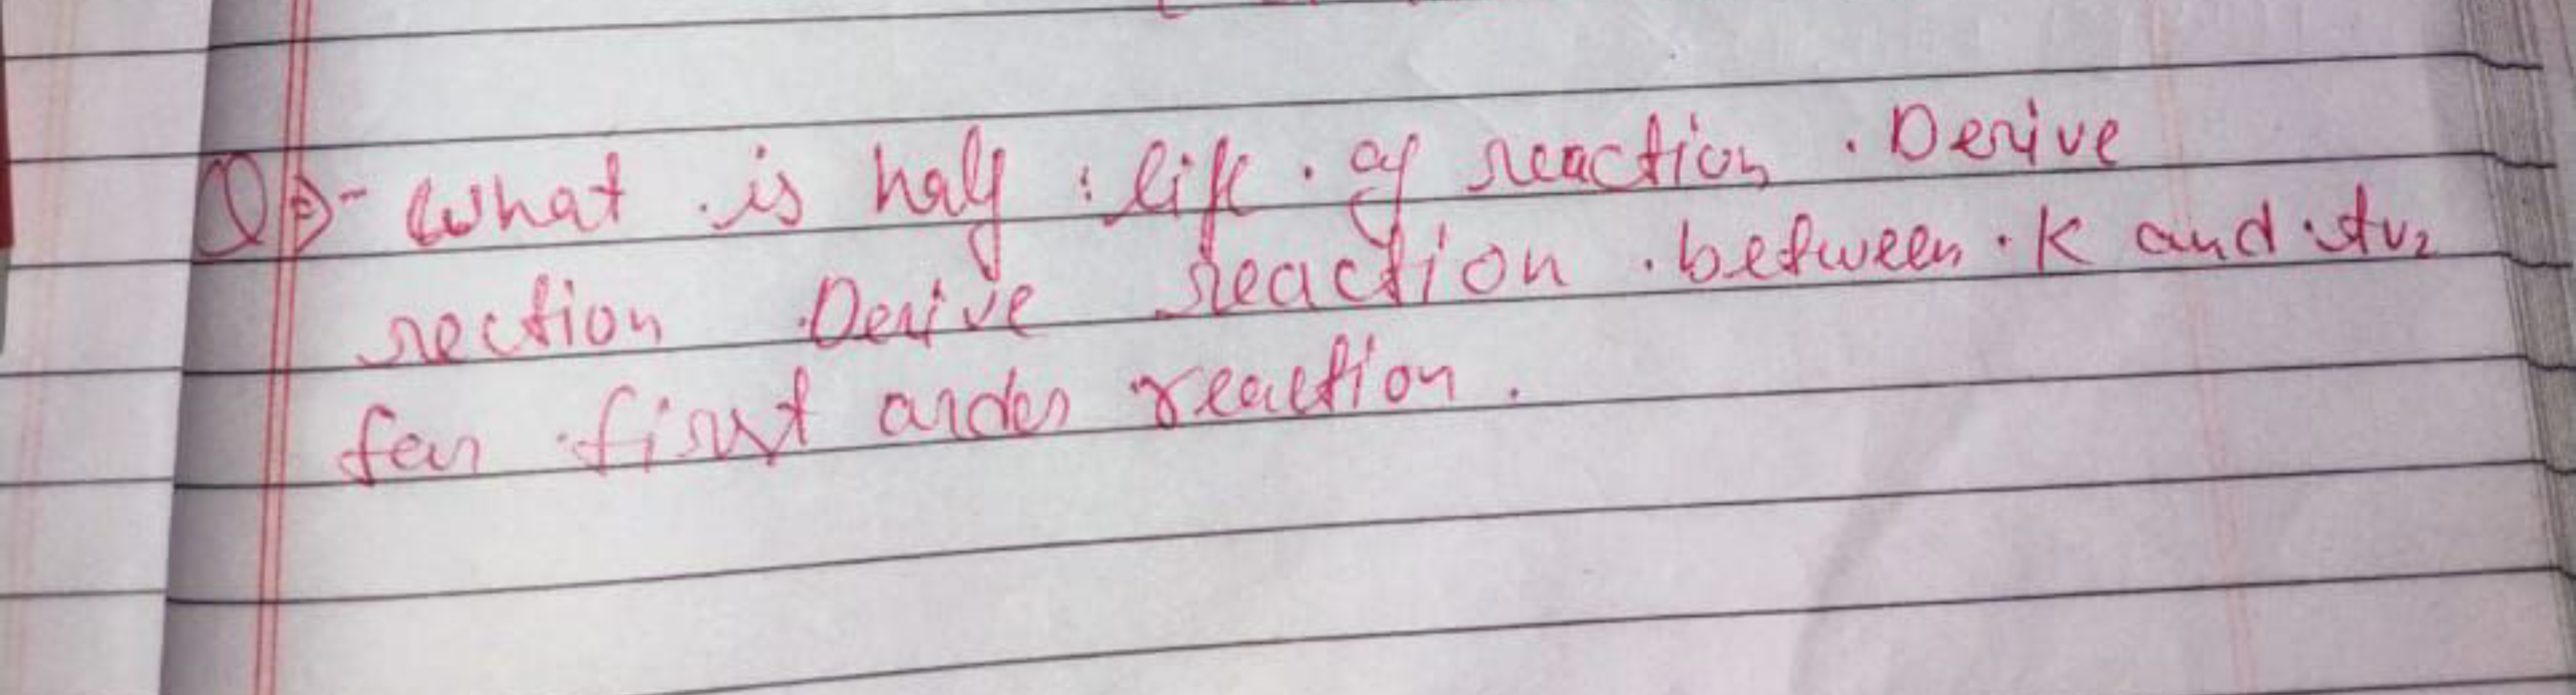 Q⇒- What is half life of reaction . Derive
rection Derive reaction between K and t1/2
for first order reaction .